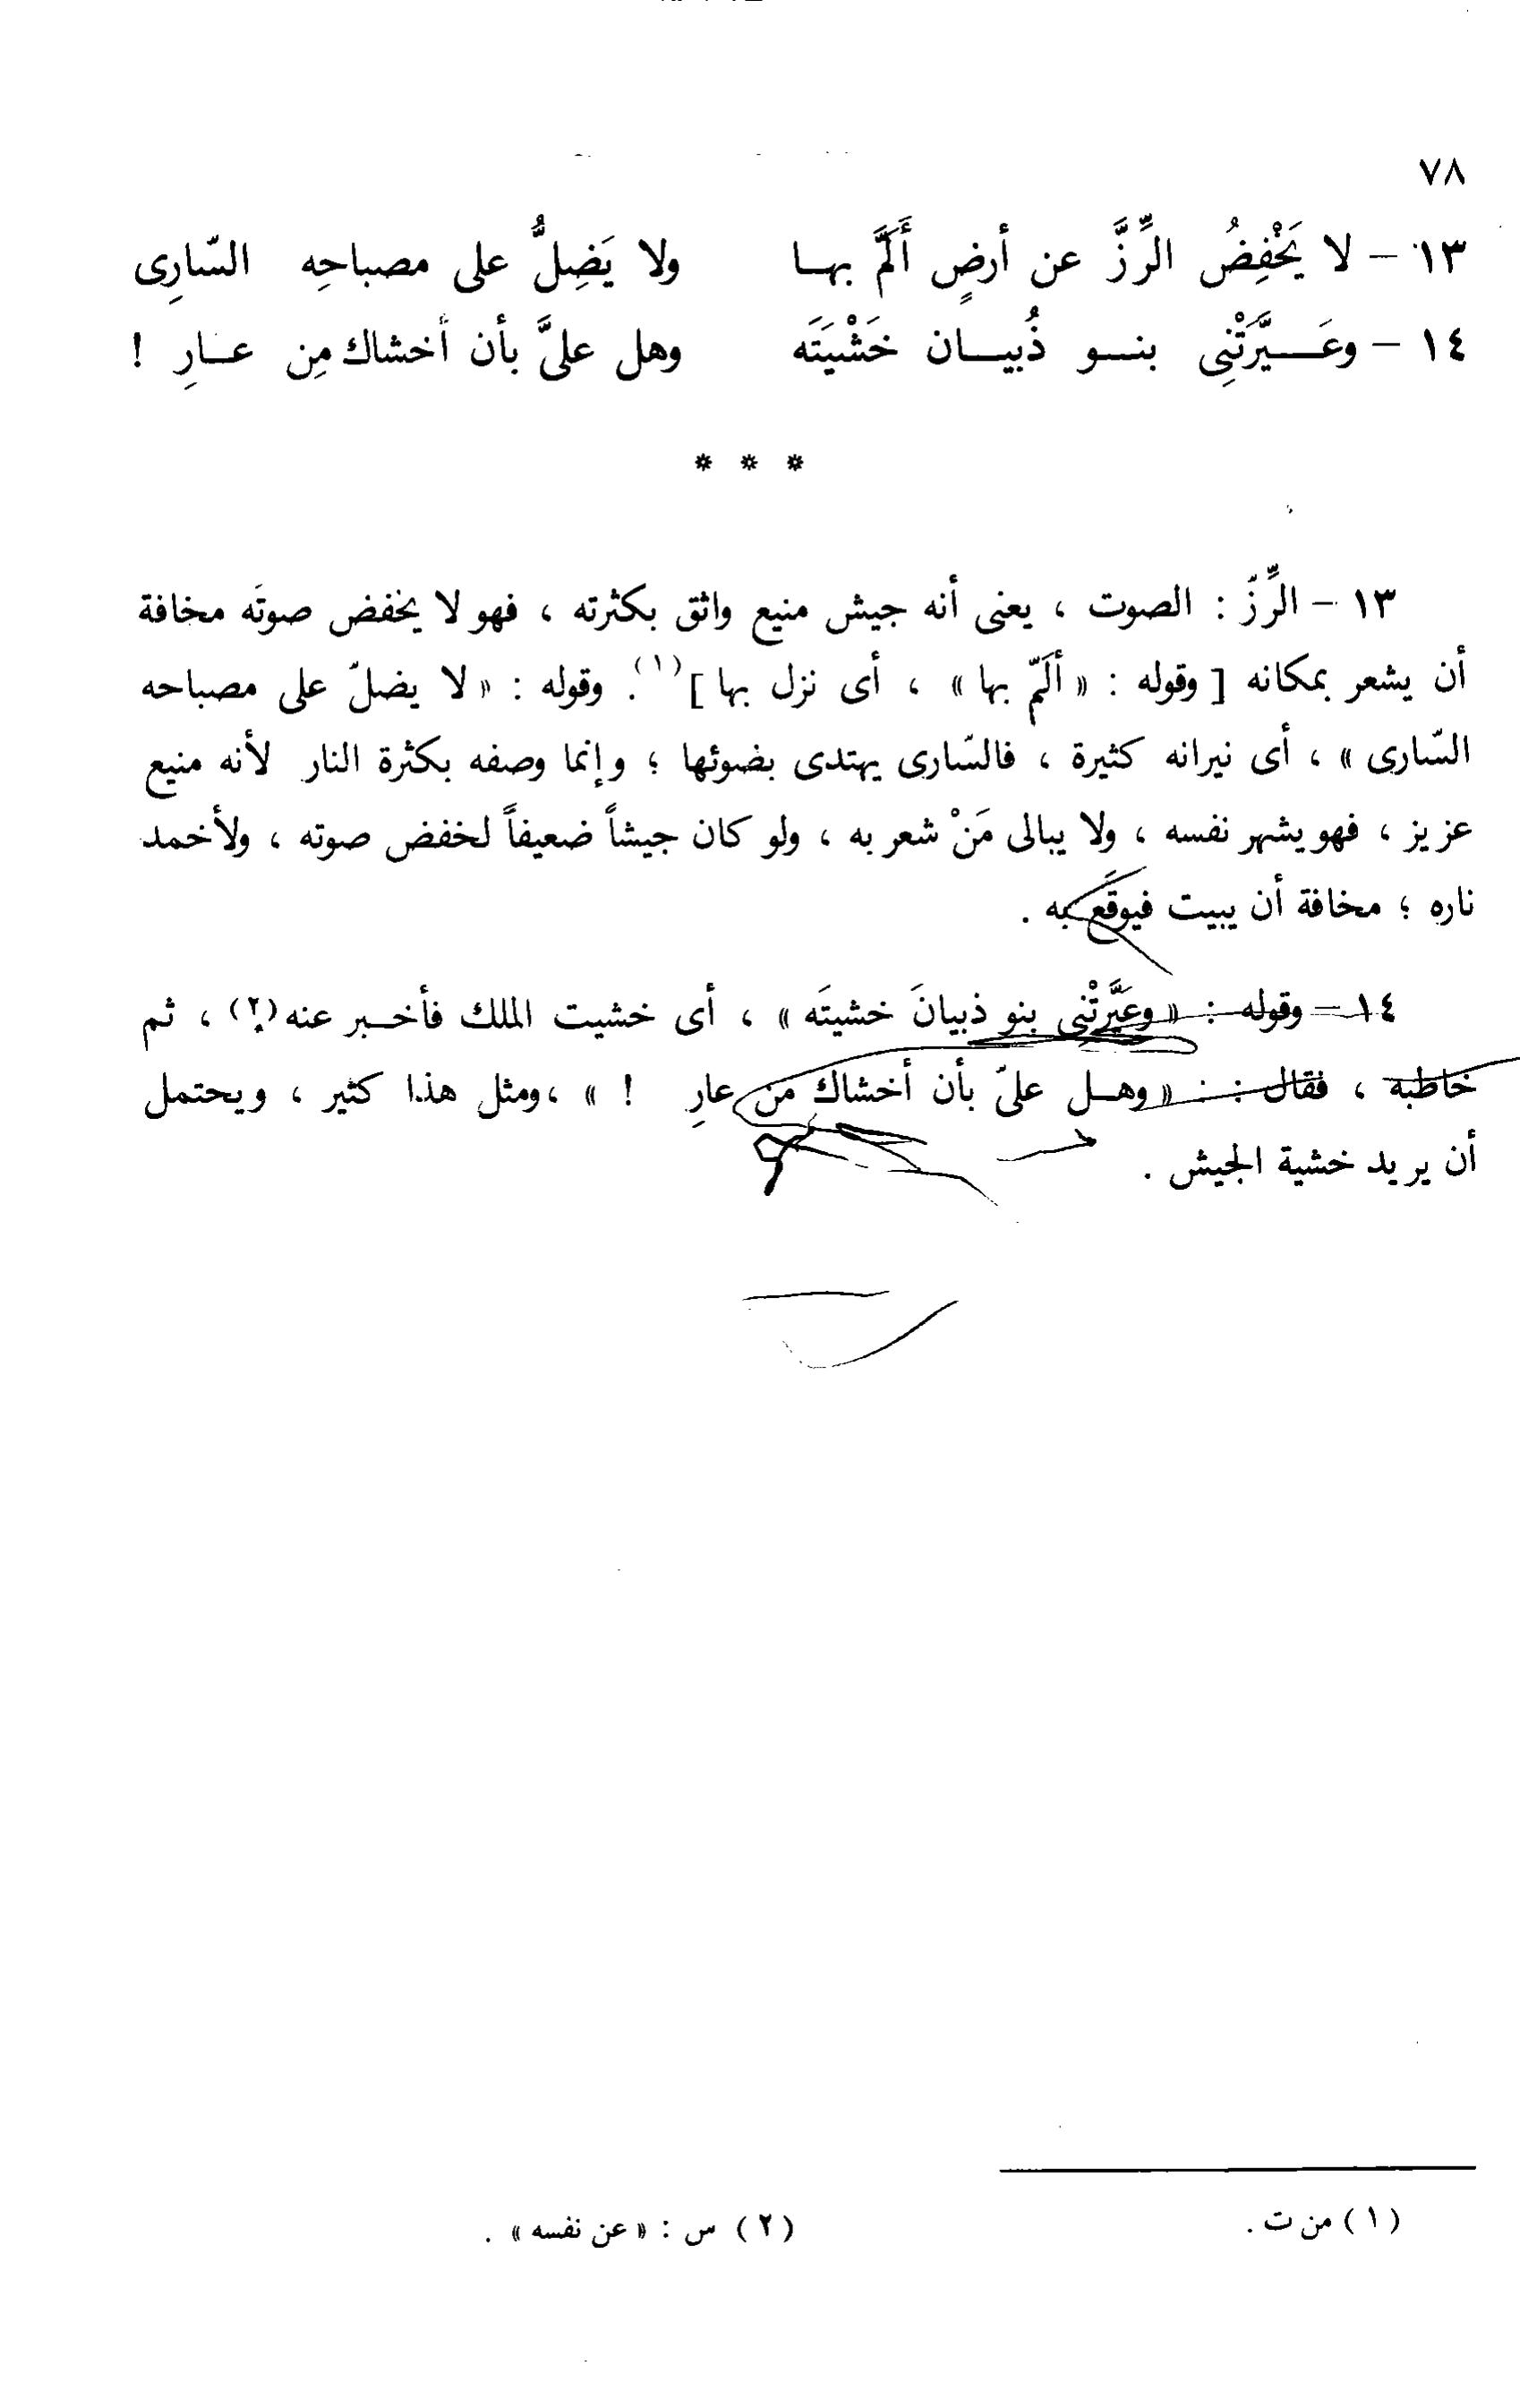 ٧٨
١٣ – لا يَخْفِضُ الرِّزَّ عن أرضٍ أَلَمَّ بهـا ولا يَضِلُّ على مصباحِه السّارِى
١٤ – وعَـــيَّرَتْنِى بنـــو ذُبيـــان خَشْيَتَه وهل علىَّ بأن أخشاك مِن عـــارِ !
* * *
١٣ – الرِّزّ : الصوت ، يعنى أنه جيش منيع واثق بكثرته ، فهو لا يخفض صوتَه مخافة
أن يشعر بمكانه [ وقوله : « ألَمّ بها » ، أى نزل بها ](١). وقوله : « لا يضلّ على مصباحه
السّارى » ، أى نيرانه كثيرة ، فالسّارى يهتدى بضوئها ؛ وإنما وصفه بكثرة النار لأنه منيع
عزيز ، فهو يشهر نفسه ، ولا يبالى مَنْ شعر به ، ولو كان جيشاً ضعيفاً لخفض صوته ، ولأخمد
ناره ؛ مخافة أن يبيت فيوقَع به .
١٤ – وقوله : « وعَيَّرتْنى بنو ذبيانَ خشيتَه » ، أى خشيت الملك فأخـــبر عنه(٢) ، ثم
خاطبه ، فقال : « وهـــل علىّ بأن أخشاك من عارِ ! » ، ومثل هذا كثير ، ويحتمل
أن يريد خشية الجيش .
(١) من ت .
(٢) س : « عن نفسه » .